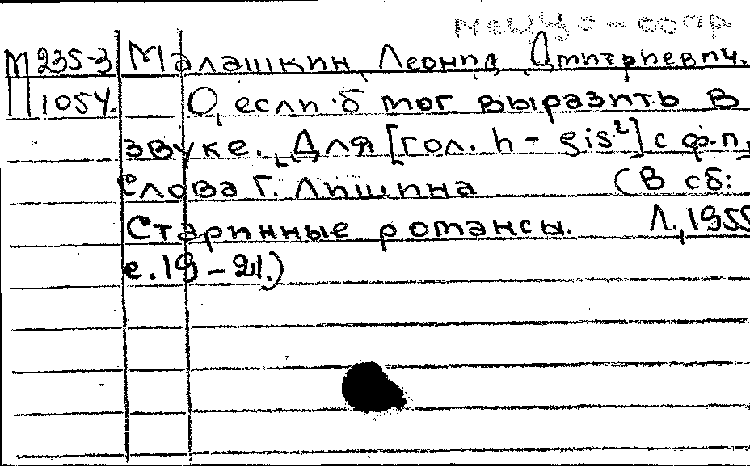 М 235-3 Малашкин, Леонид Дмитриевич.
П 1054. О, если б мог выразить в
звуке. Для [гол. h - gis²] с ф.п.
Слова Г. Лишина (В сб:
Старинные романсы. Л., 1955
с. 19 - 21.)